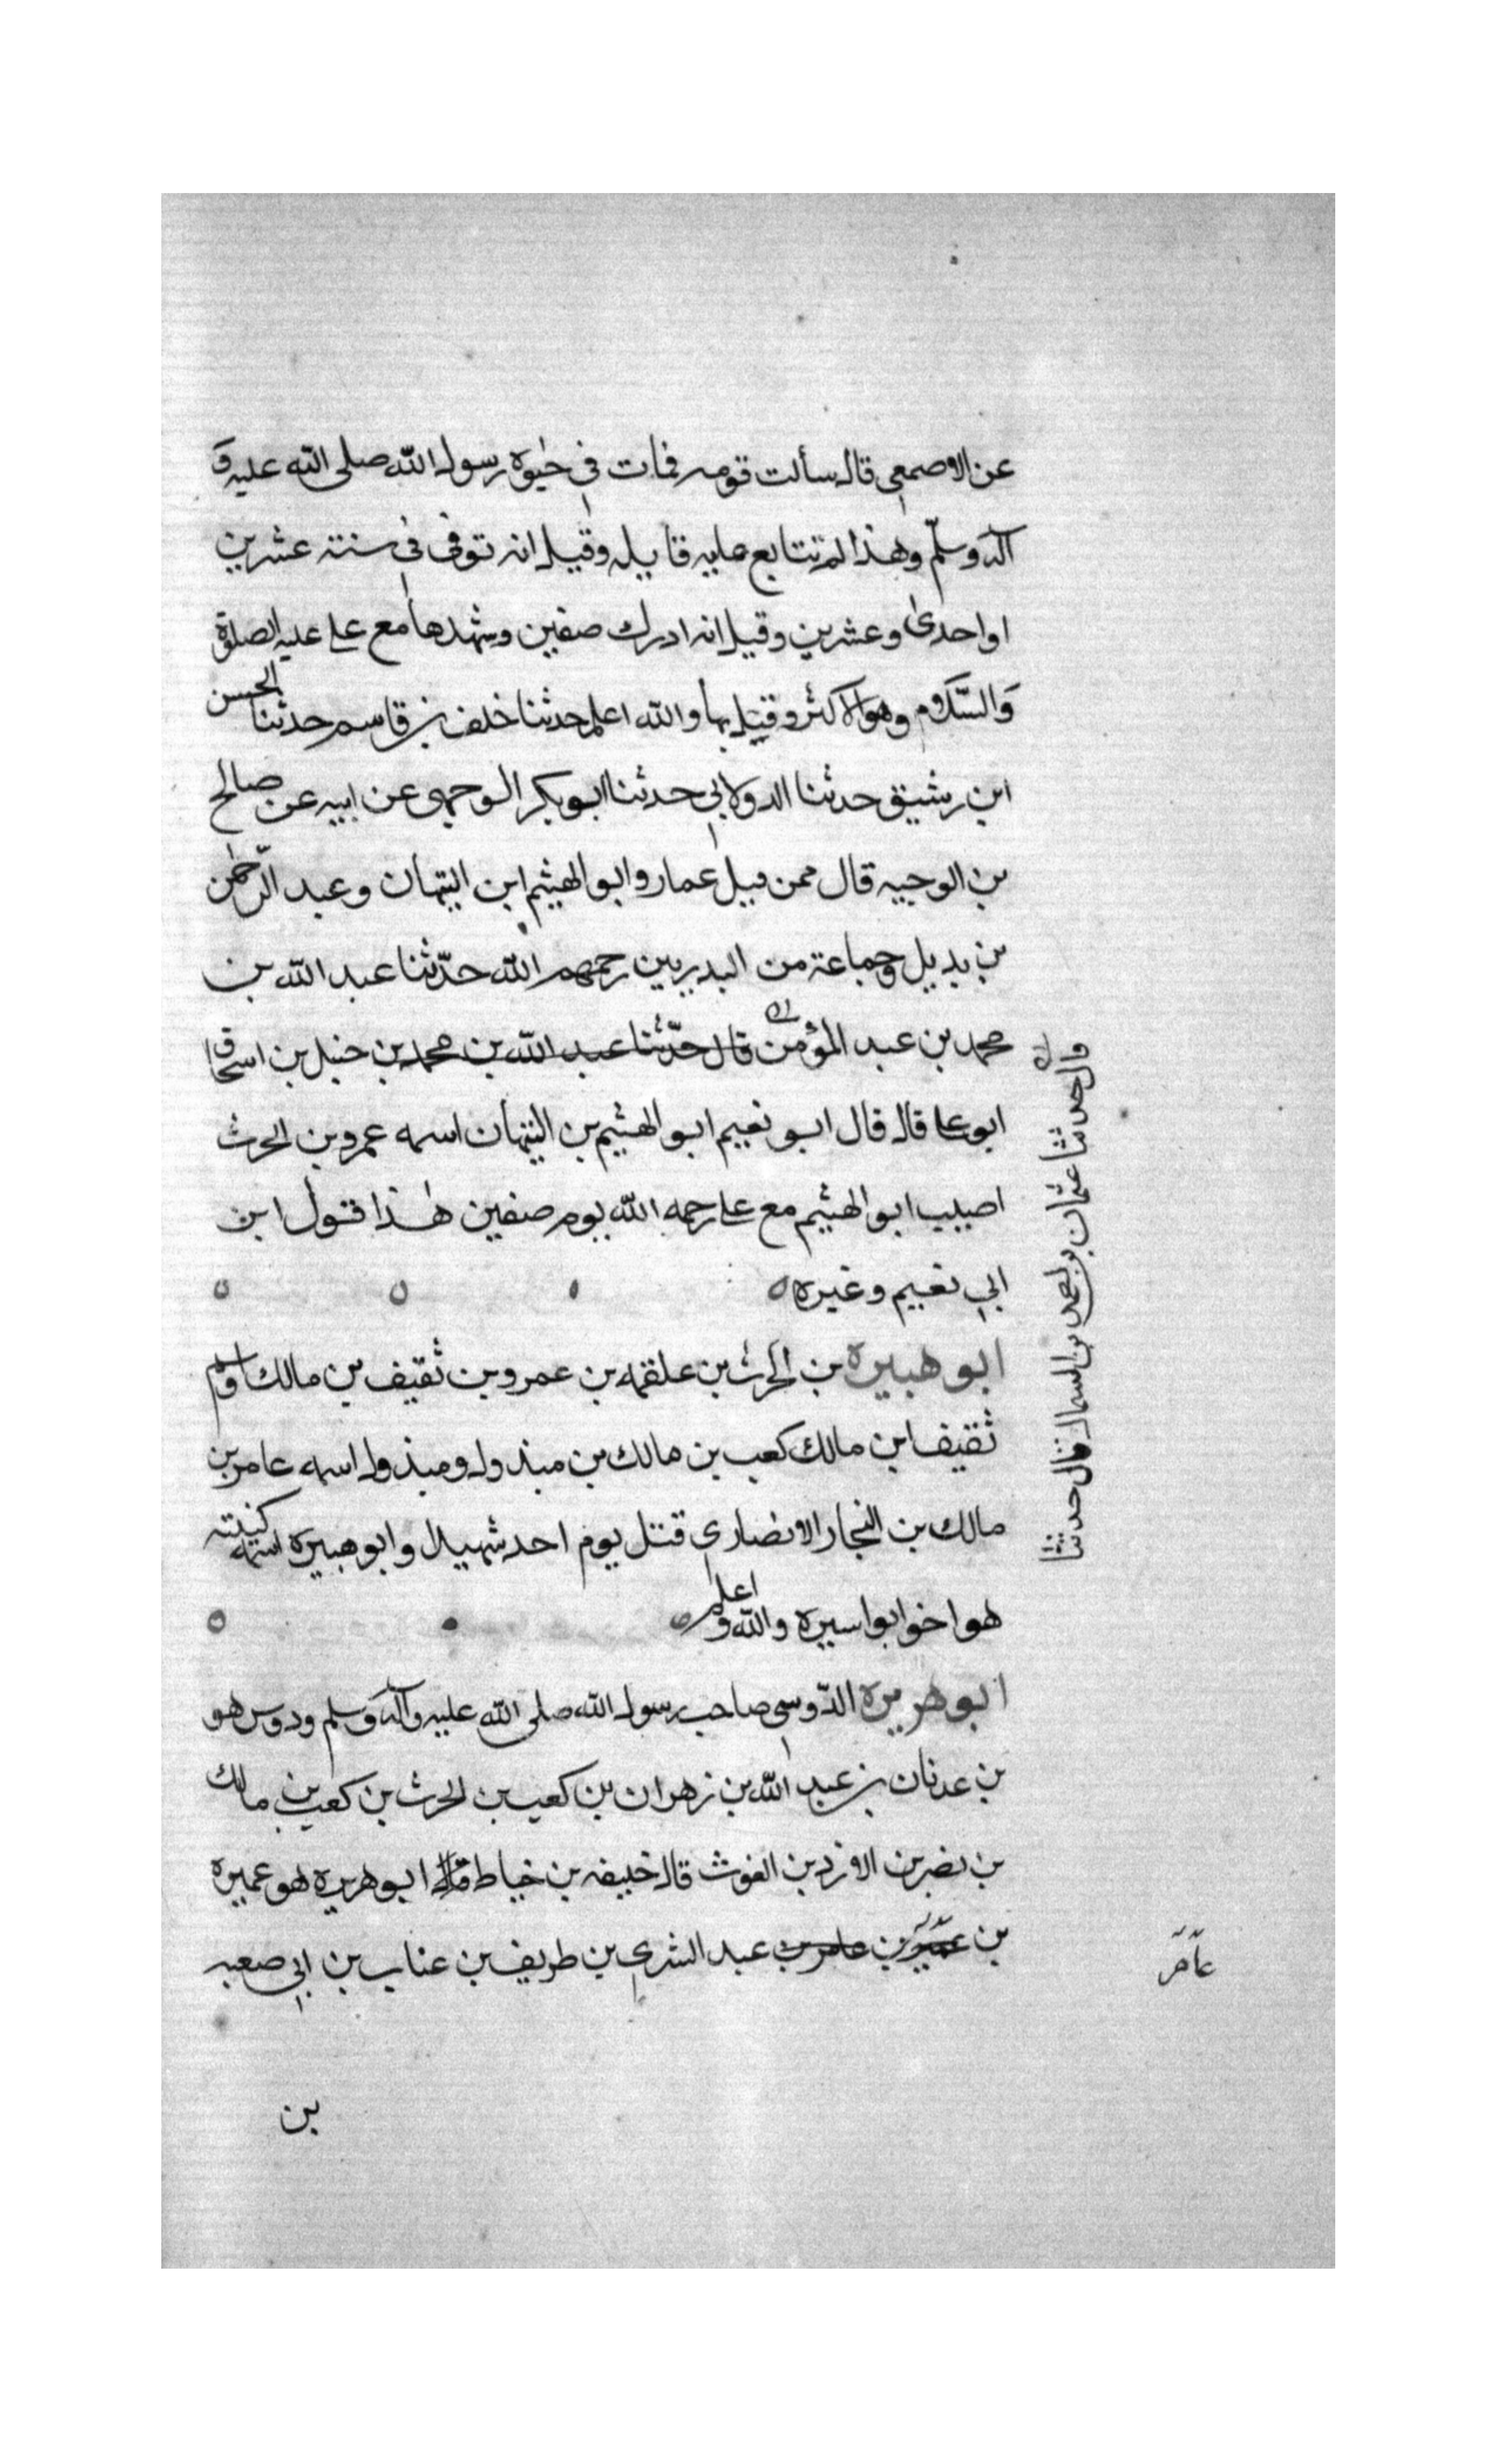 عن الاصمعي قال سألت قومه فمات في حيوة رسول الله صلى الله عليه و
آله وسلّم وهذا لم تتابع عليه قايله وقيل انه توفى في سنة عشرين
او احدى وعشرين وقيل انه ادرك صفين وشهدها مع علي عليه الصلوة
والسّلام وهو الاكثر وقيل قتل بها والله اعلم حدثنا خلف بن قاسم حدثنا الحسن
ابن رشيق حدثنا الدولابي حدثنا ابو بكر الوجيهي عن ابيه عن صالح
بن الوجيه قال ممن قتل عمار وابو الهيثم ابن التيهان وعبد الرّحمن
بن بديل وجماعة من البدريين رحمهم الله حدّثنا عبد الله بن
محمد بن عبد المؤمن قال حدّثنا عبد الله بن محمد بن حنبل بن اسحاق
ابو علي قال قال ابو نعيم ابو الهيثم بن التيهان اسمه عمرو بن الحرث
اصيب ابو الهيثم مع علي رحمه الله يوم صفين هذا قول ابن
ابي نعيم وغيره
ابو هبيره بن الحرث بن علقمه بن عمرو بن ثقيف بن مالك واسم
ثقيف ابن مالك كعب بن مالك بن مبذول ومبذول اسمه عامر بن
مالك بن النجار الانصاري قتل يوم احد شهيدا وابو هبيره اسمه كنيته
هو اخو ابو اسيره والله اعلم
ابو هريره الدّوسي صاحب رسول الله صلى الله عليه وآله وسلم ودوس هو
بن عدنان بن عبد الله بن زهران بن كعب بن الحرث بن كعب بن مالك
بن نصر بن الازد بن الغوث قال خليفه بن خياط ابو هريره هو عميره
بن عامر بن عبد الشرى بن طريف بن عتاب بن ابي صعبه
بن
قال حدثنا عثمان بن احمد بن السماك قال حدثنا
عامر